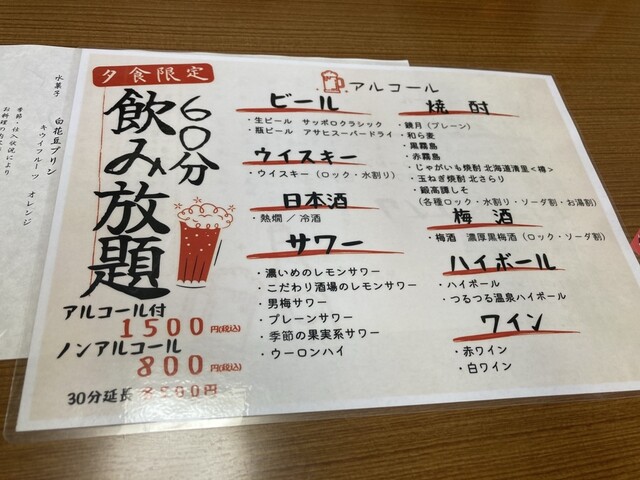 夕食限定
60分
飲み放題
アルコール付
1500円(税込)
ノンアルコール
800円(税込)
30分延長 500円
アルコール
ビール
・生ビール サッポロクラシック
・瓶ビール アサヒスーパードライ
ウイスキー
・ウイスキー（ロック・水割り）
日本酒
・熱燗 ／ 冷酒
サワー
・濃いめのレモンサワー
・こだわり酒場のレモンサワー
・男梅サワー
・プレーンサワー
・季節の果実系サワー
・ウーロンハイ
焼酎
・鏡月（プレーン）
・和ら麦
・黒霧島
・赤霧島
・じゃがいも焼酎 北海道清里<樽>
・玉ねぎ焼酎 北さらり
・鍛高譚しそ
（各種ロック・水割り・ソーダ割・お湯割）
梅酒
・梅酒 濃厚黒梅酒（ロック・ソーダ割）
ハイボール
・ハイボール
・つるつる温泉ハイボール
ワイン
・赤ワイン
・白ワイン
水菓子 白花豆プリン
キウイフルーツ オレンジ
季節・仕入状況により
お料理の内